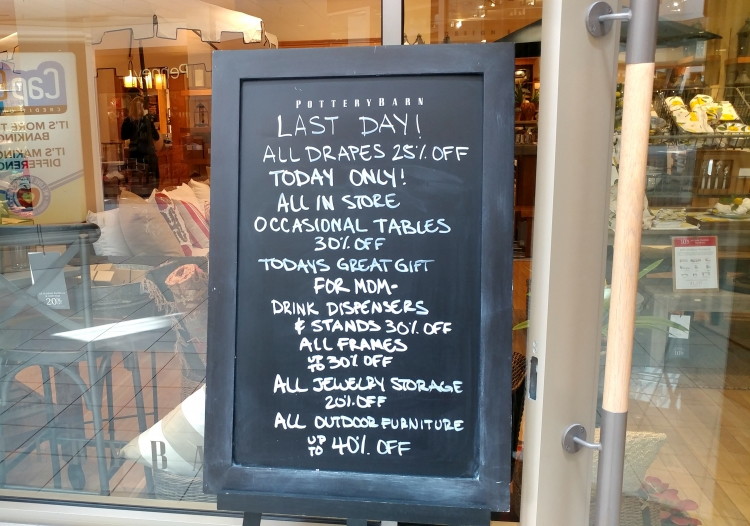 POTTERY BARN
LAST DAY!
ALL DRAPES 25% OFF
TODAY ONLY!
ALL IN STORE
OCCASIONAL TABLES
30% OFF
TODAYS GREAT GIFT
FOR MOM-
DRINK DISPENSERS
& STANDS 30% OFF
ALL FRAMES
UP TO 30% OFF
ALL JEWELRY STORAGE
20% OFF
ALL OUTDOOR FURNITURE
UP TO 40% OFF
IT'S MORE
BANKING
IT'S MAKING
DIFFERENCE